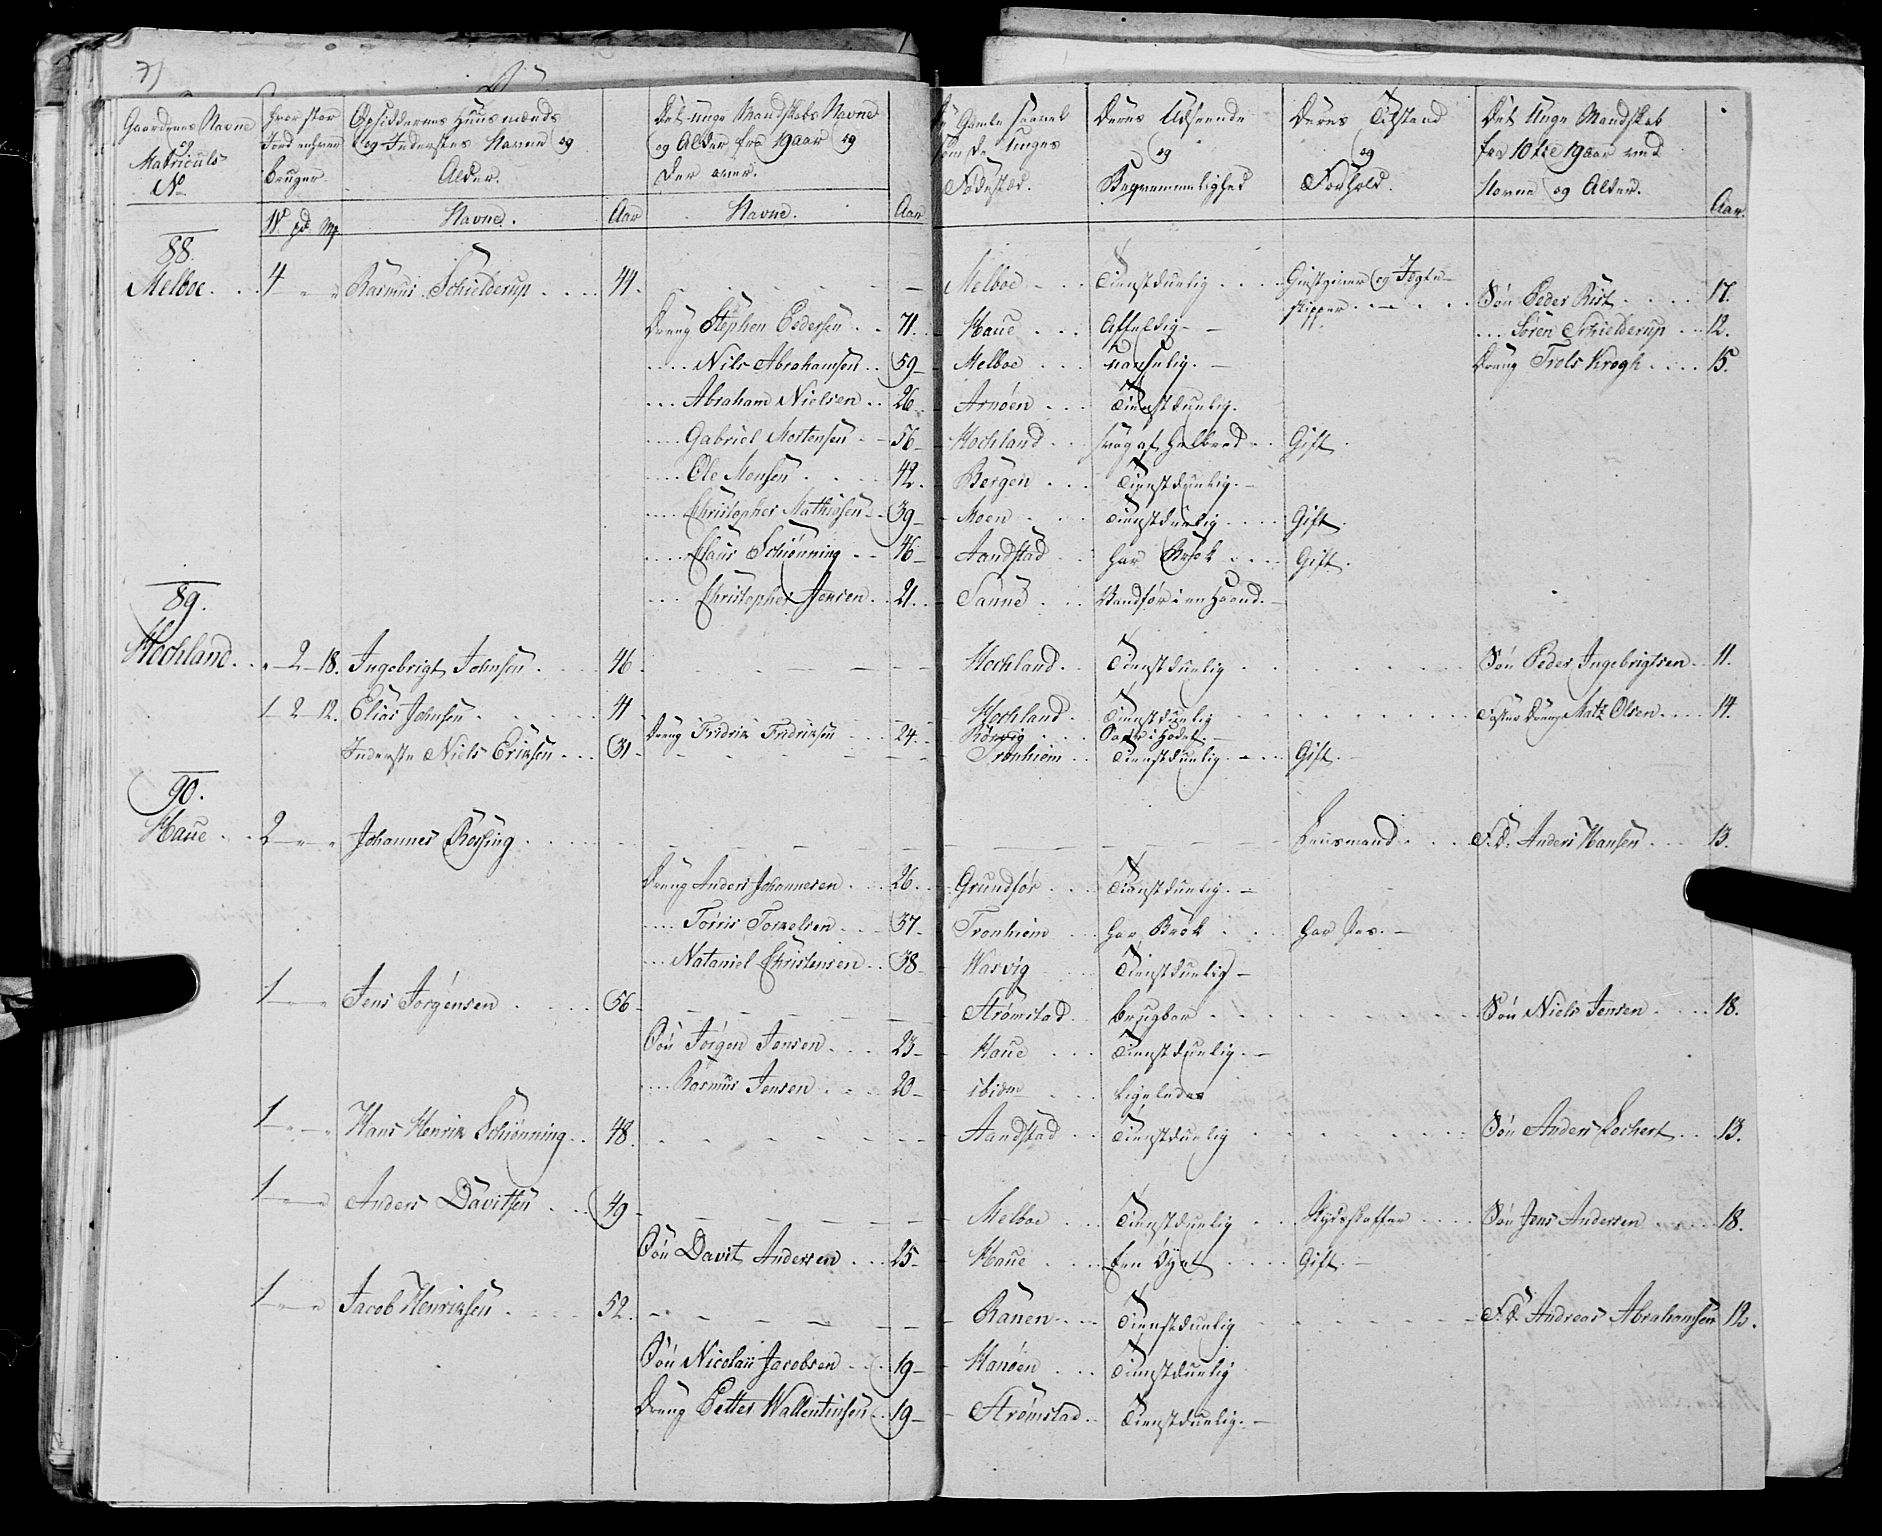 7)
Gaardenes Navne og Matriculs No
Hvor stor Jord enhver bruger.
Opsiddernes Huusmænds og Inderstes Navne og Alder.
Det unge Mandskabs Navne og Alder fra 19 aar og der over.
De Gamle saavel som de Unges Födested.
Deres Udseende og Beqvemmelighed
Deres Tilstand og Forhold.
Det Unge Mandskab fra 10 til 19 aar ved Navne og Alder.
W. pd. Mk. Navne. Aar Navne. Aar Aar.
88.
Melboe. 4 " " Rasmus Schielderup 44. Melboe Tienstduelig Giestgiver og Jegte- skipper Sön Peder Rist 17.
Dreng Stephen Pedersen 71. Haue Affeldig Sören Schielderup 12.
Nils Abrahamsen 59 Melboe Dreng Trols Krogh 15.
Abraham Nielsen 26 Arnöen Tienstduelig.
Gabriel Mortensen 56 Hochland svag af Helbred Gift.
Ole Monsen 42. Bergen Tienstduelig.
Christopher Mathiasen 39 Moen Tienstduelig Gift.
Claus Schiönning 46 Aandstad har Brok Gift.
Christopher Jensen 21. Sanne Vanför i en Haand.
89.
Hochland. " 2 18. Ingebrigt Johnsen 46 Hochland. Tienstduelig Sön Peder Ingebrigtsen 11.
1 2 12. Elias Johnsen 41 Hochland. Tienstduelig Foster Dreng Matz Olsen 14.
Dreng Fridrik Fridriksen 24. Rörvig Saar i Hodet.
Inderste Niels Eriksen 31 Tronhiem Tienstduelig Gift.
90.
Haue 2 " " Johannes Rossing Lensmand F.D. Anders Hansen 13.
Dreng Anders Johannesen 26. Grundför Tienstduelig.
Törris Torkelsen 37. Tronhiem har Brok har Pas.
Nataniel Christensen 38 Warvig Tienstduelig
1 " " Jens Jorgensen 56 Strömstad brugbar Sön Niels Jensen 18.
Sön Jörgen Jensen 23 Haue Tienstduelig.
Rasmus Jensen 20 ibidm ligeledes
1 " " Hans Henrik Schiönning 48. Aandstad Tienstduelig Sön Anders Lochert 13.
1 " " Anders Davitsen 49 Melboe Tienstduelig Skydsskaffer Sön Jens Andersen 18.
Sön Davit Andersen 25 Haue Een Öyet Gift.
1 " " Jacob Henriksen 52. Ranen Tienstduelig F.D. Andreas Abrahamsen 12.
Sön Nicolaii Jacobsen 19 Hanöen Tienstduelig
Dreng Petter Wallentinsen 19 Strömstad Tienstduelig.